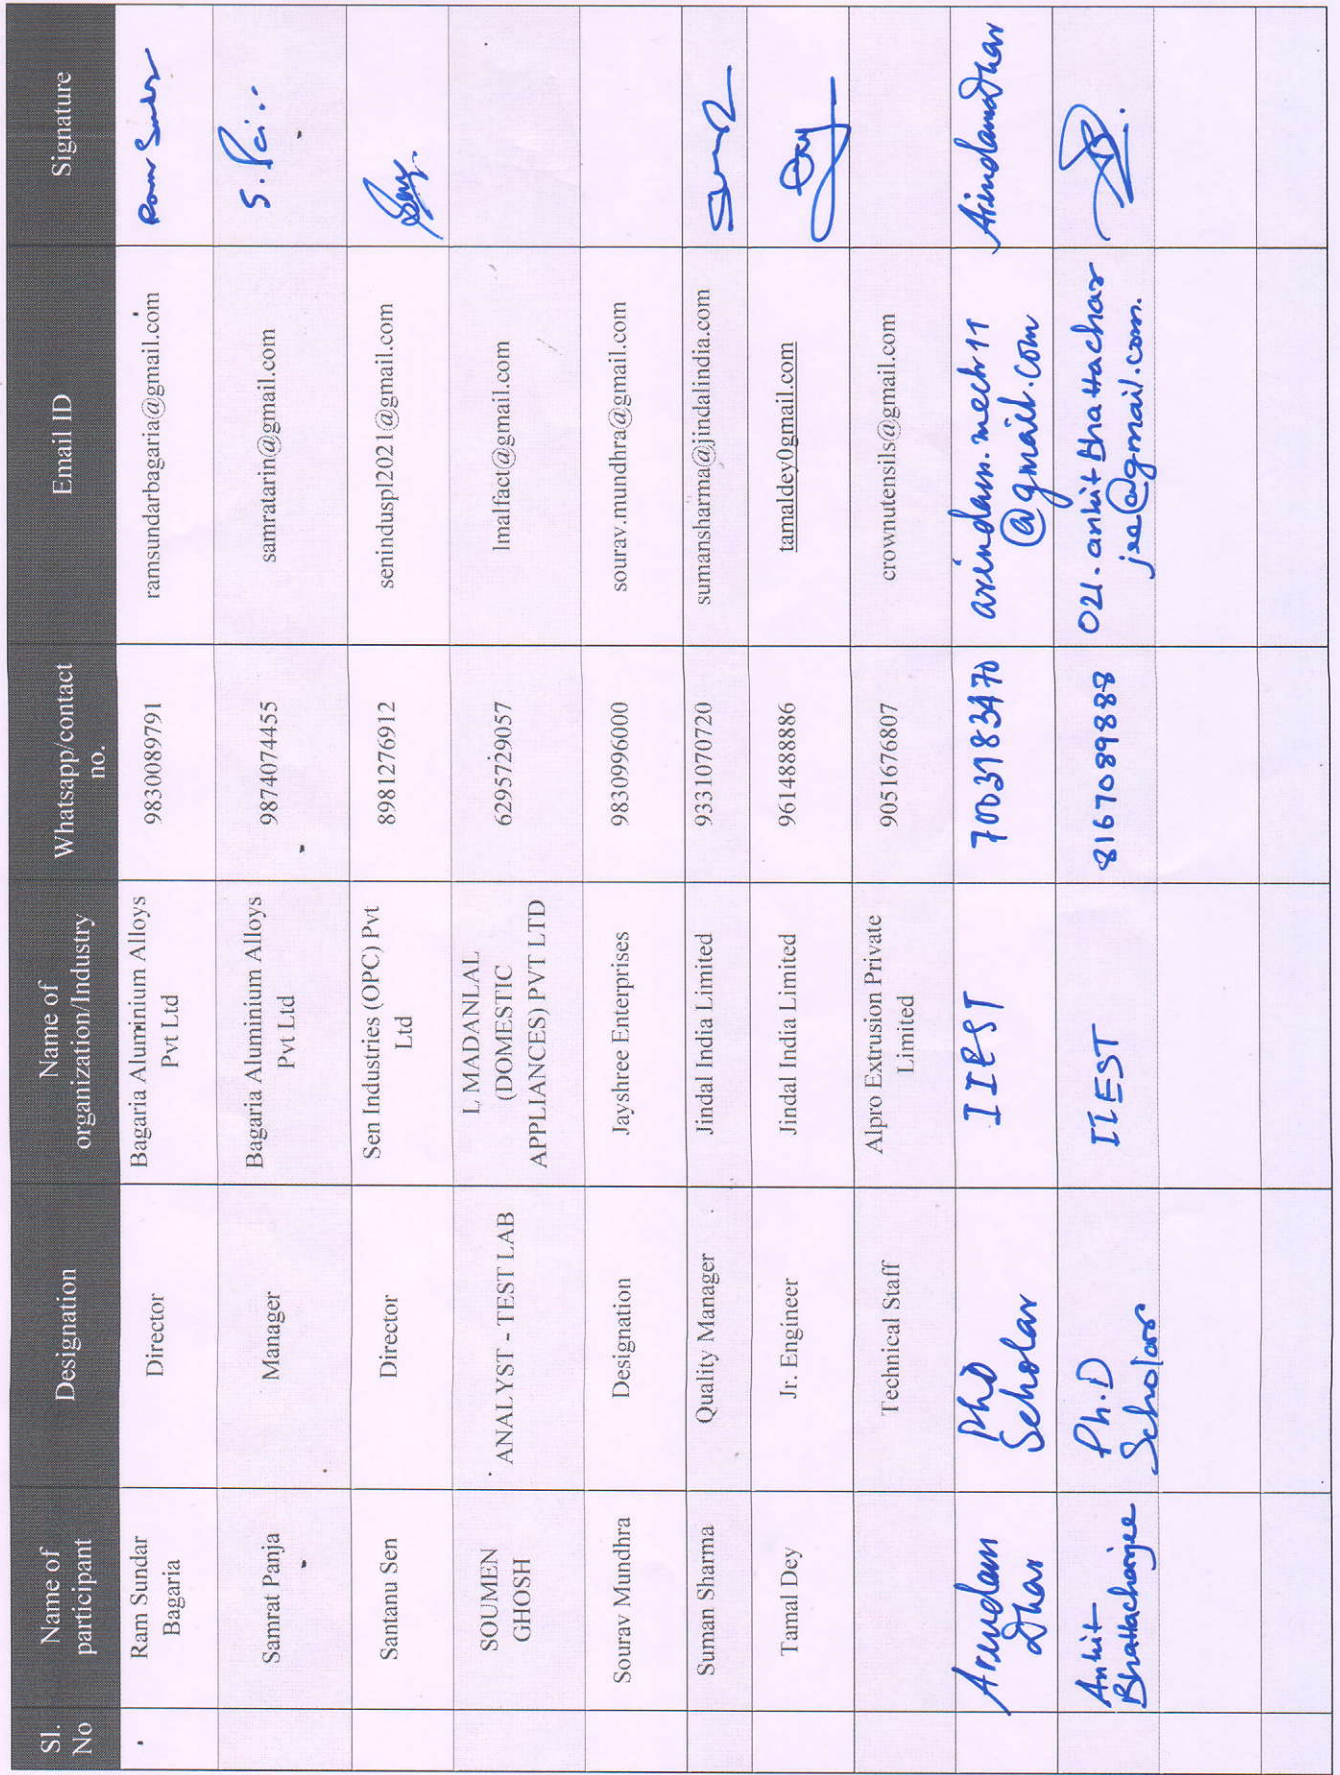 Sl. No
Name of participant
Designation
Name of organization/Industry
Whatsapp/contact no.
Email ID
Signature
Ram Sundar
Bagaria
Director
Bagaria Aluminium Alloys
Pvt Ltd
9830089791
ramsundarbagaria@gmail.com
Ram Sunder
Samrat Panja
Manager
Bagaria Aluminium Alloys
Pvt Ltd
9874074455
samratarin@gmail.com
Santanu Sen
Director
Sen Industries (OPC) Pvt
Ltd
8981276912
seninduspl2021@gmail.com
SOUMEN
GHOSH
ANALYST - TEST LAB
L MADANLAL
(DOMESTIC
APPLIANCES) PVT LTD
6295729057
lmalfact@gmail.com
Sourav Mundhra
Designation
Jayshree Enterprises
9830996000
sourav.mundhra@gmail.com
Suman Sharma
Quality Manager
Jindal India Limited
9331070720
sumansharma@jindalindia.com
Tamal Dey
Jr. Engineer
Jindal India Limited
9614888886
tamaldey0gmail.com
Technical Staff
Alpro Extrusion Private
Limited
9051676807
crownutensils@gmail.com
Arindam
Dhar
PhD
Scholar
IIEST
7003783470
arindam.mech11
@gmail.com
Arindam Dhar
Ankit
Bhattacharjee
Ph.D
Scholar
IIEST
8167089888
021.ankitbhattachar
jee@gmail.com.